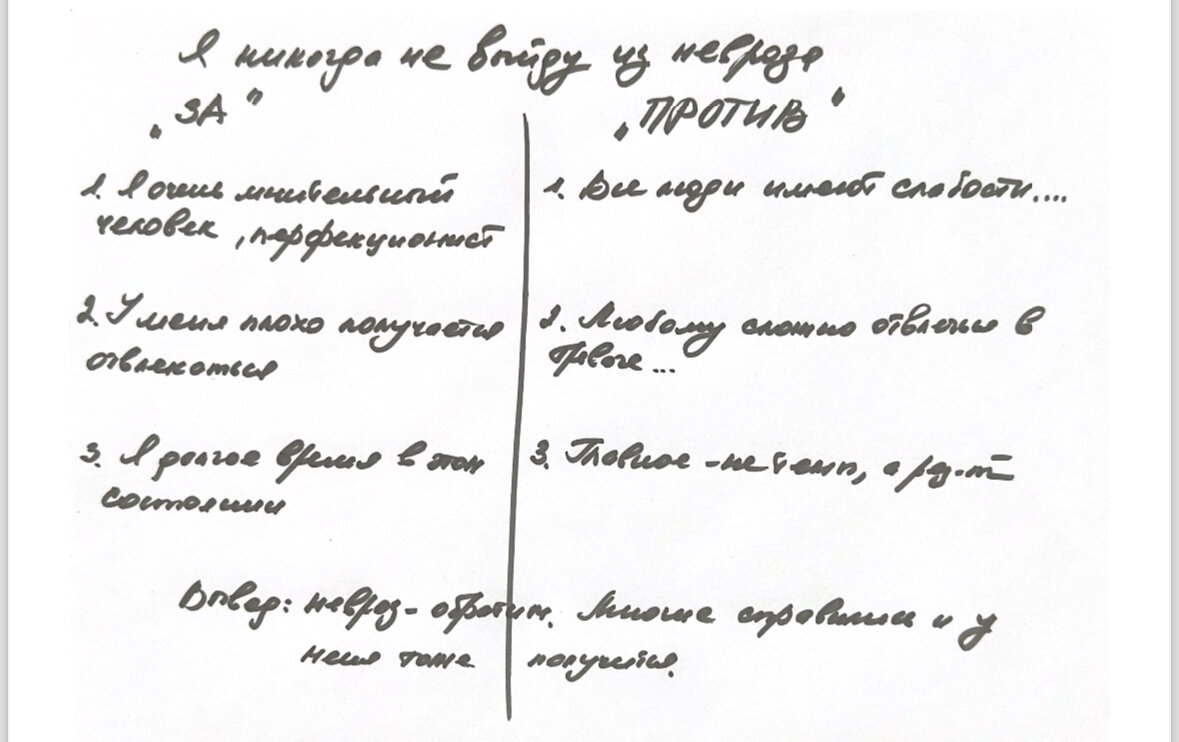 Я никогда не выйду из невроза
„ЗА“
„ПРОТИВ“
1. Я очень мнительный
человек, перфекционист
1. Все люди имеют слабости....
2. У меня плохо получается
отвлекаться
2. Любому сложно отвлечься в
тревоге...
3. Я долгое время в этом
состоянии
3. Главное - не темп, а рез-т
Вывод: невроз - обратим. Многие справились и у
меня тоже получится.